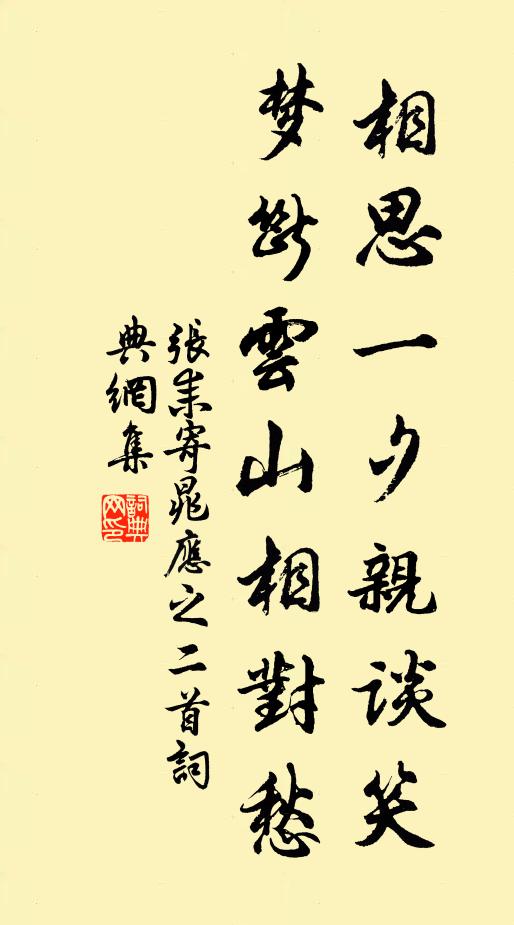 相思一夕親談笑
梦斷雲山相對愁
張耒寄晁應之二首詞
典網集
詞典
网印